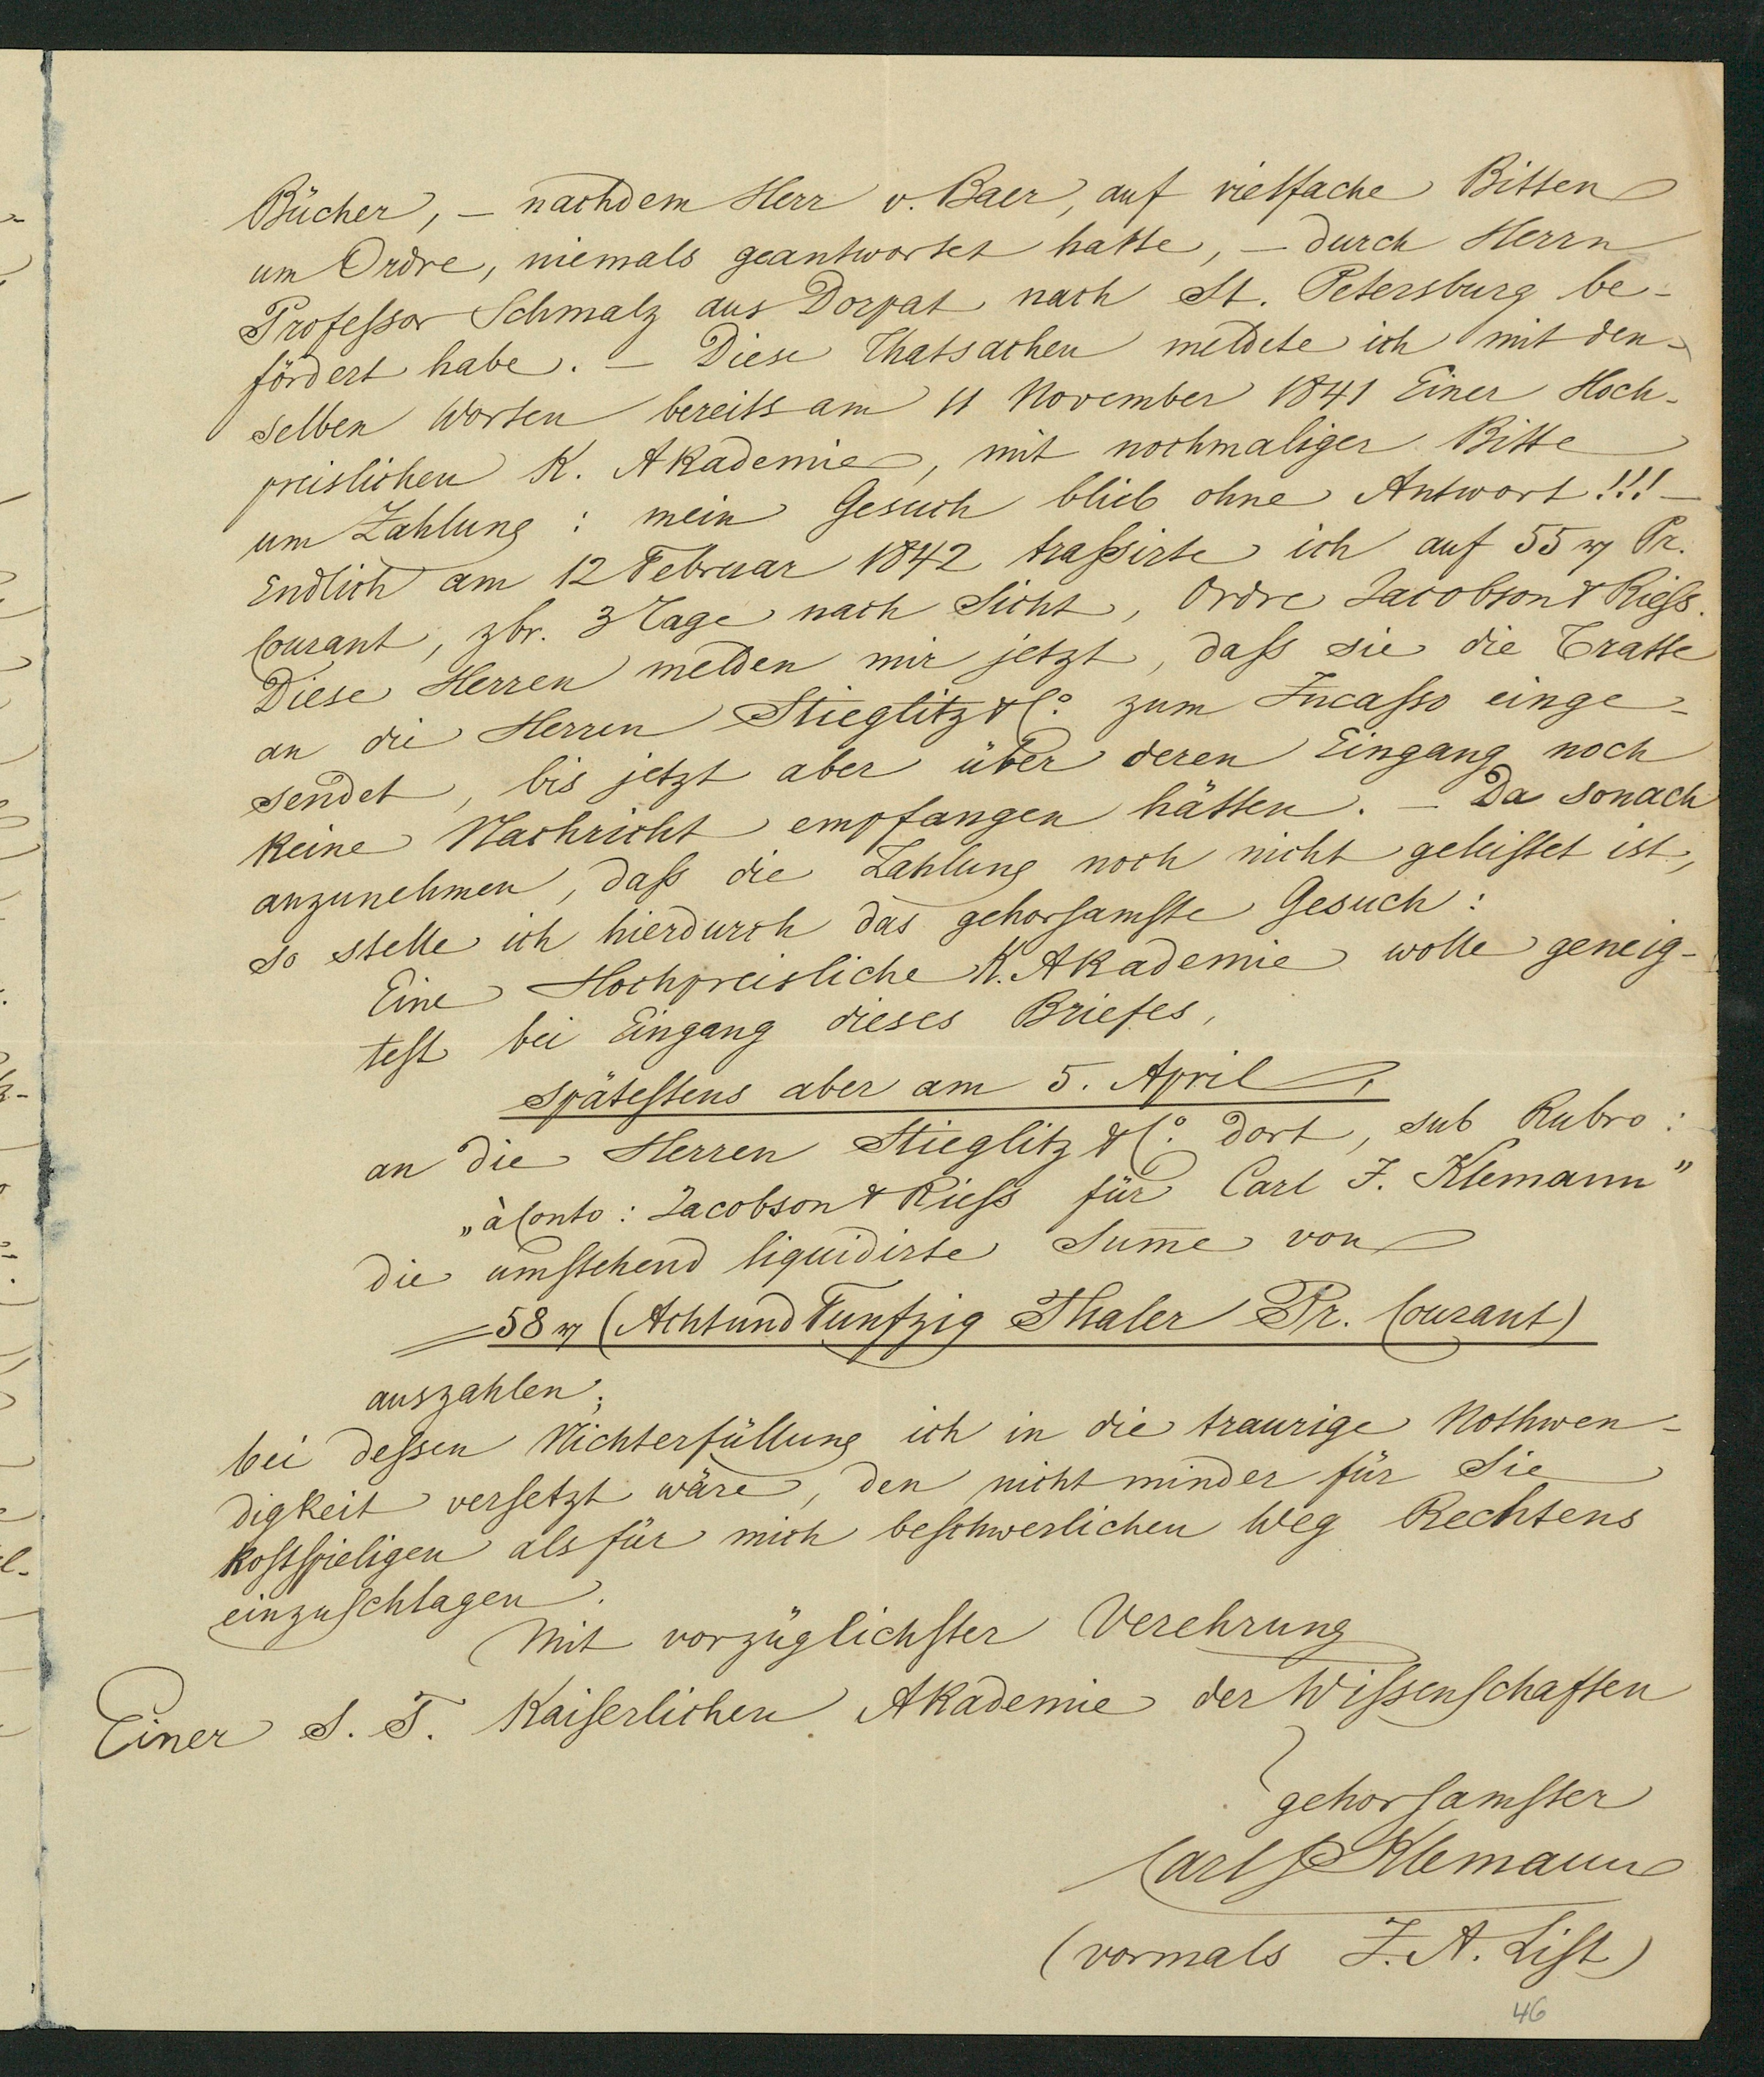 Bücher, – nachdem Herr v. Baer, auf vielfache Bitten
um Ordre, niemals geantwortet hatte, – durch Herrn
Professor Schmalz aus Dorpat nach St. Petersburg be-
fördert habe. – Diese Thatsachen meldete ich mit den-
selben Worten bereits am 11 November 1841 Einer Hoch-
preislichen K. Akademie, mit nochmaliger Bitte
um Zahlung : mein Gesuch blieb ohne Antwort!!! –
Endlich am 12 Februar 1842 traßirte ich auf 55 rℓ Pr.
Courant, zbr. 3 Tage nach Sicht, Ordre Jacobson & Rieß.
Diese Herren melden mir jetzt, daß sie die Tratte
an die Herren Stieglitz & Co. zum Incasso einge-
sendet, bis jetzt aber über deren Eingang noch
keine Nachricht empfangen hätten. – Da sonach
anzunehmen, daß die Zahlung noch nicht geleistet ist,
so stelle ich hierdurch das gehorsamste Gesuch :
Eine Hochpreisliche K. Akademie wolle geneig-
test bei Eingang dieses Briefes,
spätestens aber am 5. April,
an die Herren Stieglitz & Co. dort, sub Rubro :
„à Conto : Jacobson & Rieß für Carl J. Klemann"
die umstehend liquidirte Sum̅e von
= 58 rℓ (Achtund Funfzig Thaler Pr. Courant)
auszahlen;
bei deßen Nichterfüllung ich in die traurige Nothwen-
digkeit versetzt wäre, den nicht minder für Sie
kostspieligen als für mich beschwerlichen Weg Rechtens
einzuschlagen.
Mit vorzüglichster Verehrung
Einer S. T. Kaiserlichen Akademie der Wißenschaften
gehorsamster
Carl J Klemann
(vormals J. A. List)
46